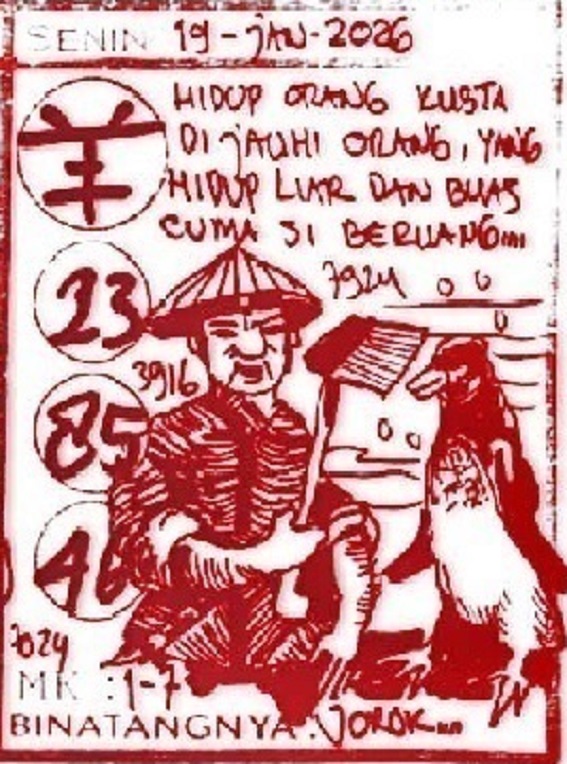 SENIN 19-JAN-2026
HIDUP ORANG KUSTA
DI JAUHI ORANG, YANG
HIDUP LUAR DAN BUAS
CUMA SI BERUANG....
羊
23
7924
3916
85
46
7024
MK : 1-7
BINATANGNYA : JOROK...